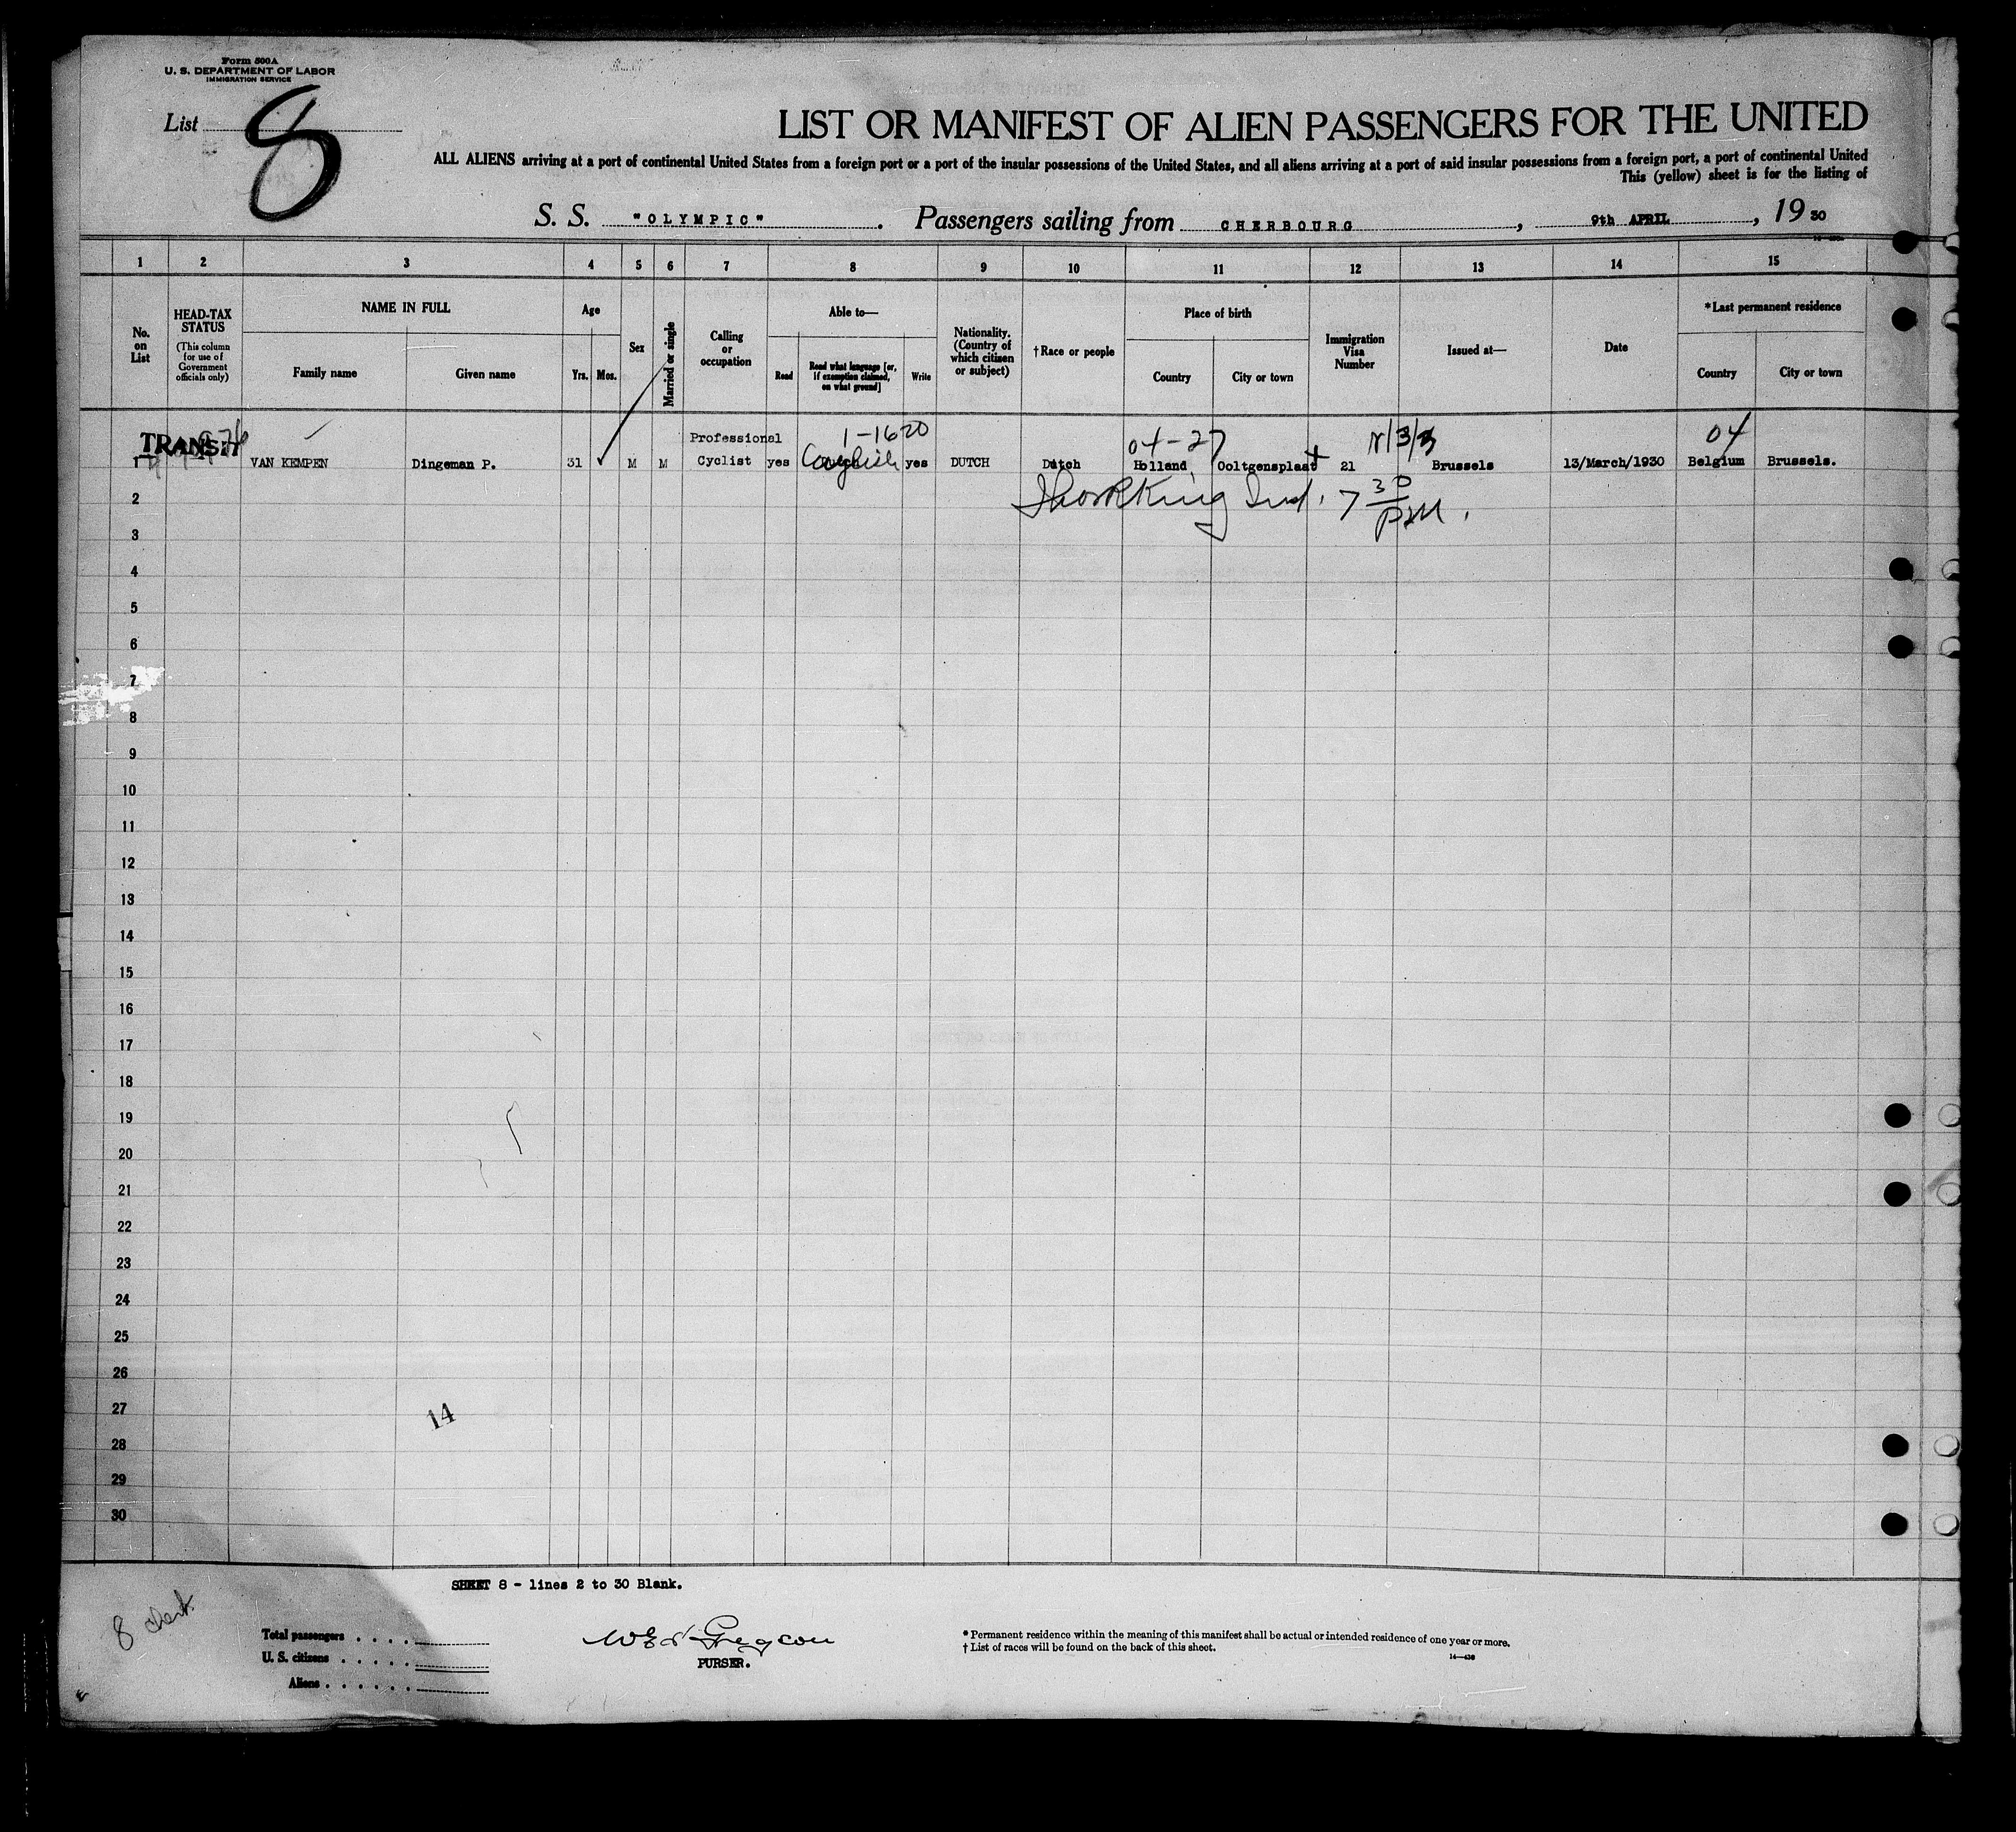 Form 500A
U. S. DEPARTMENT OF LABOR
IMMIGRATION SERVICE
List 8
LIST OR MANIFEST OF ALIEN PASSENGERS FOR THE UNITED
ALL ALIENS arriving at a port of continental United States from a foreign port or a port of the insular possessions of the United States, and all aliens arriving at a port of said insular possessions from a foreign port, a port of continental United
This (yellow) sheet is for the listing of
S. S. "OLYMPIC". Passengers sailing from CHERBOURG, 9th APRIL, 19 30
1 2 3 4 5 6 7 8 9 10 11 12 13 14 15
No. on List
HEAD-TAX STATUS
(This column for use of Government officials only)
NAME IN FULL
Family name
Given name
Age
Yrs. Mos.
Sex
Married or single
Calling or occupation
Able to—
Read
Read what language [or, if exemption claimed, on what ground]
Write
Nationality. (Country of which citizen or subject)
†Race or people
Place of birth
Country
City or town
Immigration Visa Number
Issued at—
Date
*Last permanent residence
Country
City or town
TRANSIT
Professional 1-1620 04-27 04
1 VAN KEMPEN Dingeman P. 31 M M Cyclist yes English yes DUTCH Dutch Holland Ooltgensplaat 21 Brussels 13/March/1930 Belgium Brussels.
2 7 30 PM.
3
4
5
6
7
8
9
10
11
12
13
14
15
16
17
18
19
20
21
22
23
24
25
26
27
14
28
29
30
SHEET 8 - lines 2 to 30 Blank.
8
Total passengers
U. S. citizens
Aliens
PURSER.
* Permanent residence within the meaning of this manifest shall be actual or intended residence of one year or more.
† List of races will be found on the back of this sheet.
14—430